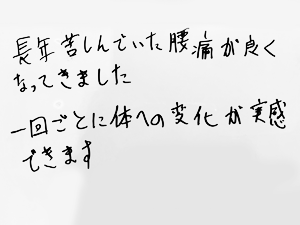 長年苦しんでいた腰痛が良く
なってきました
一回ごとに体への変化が実感
できます